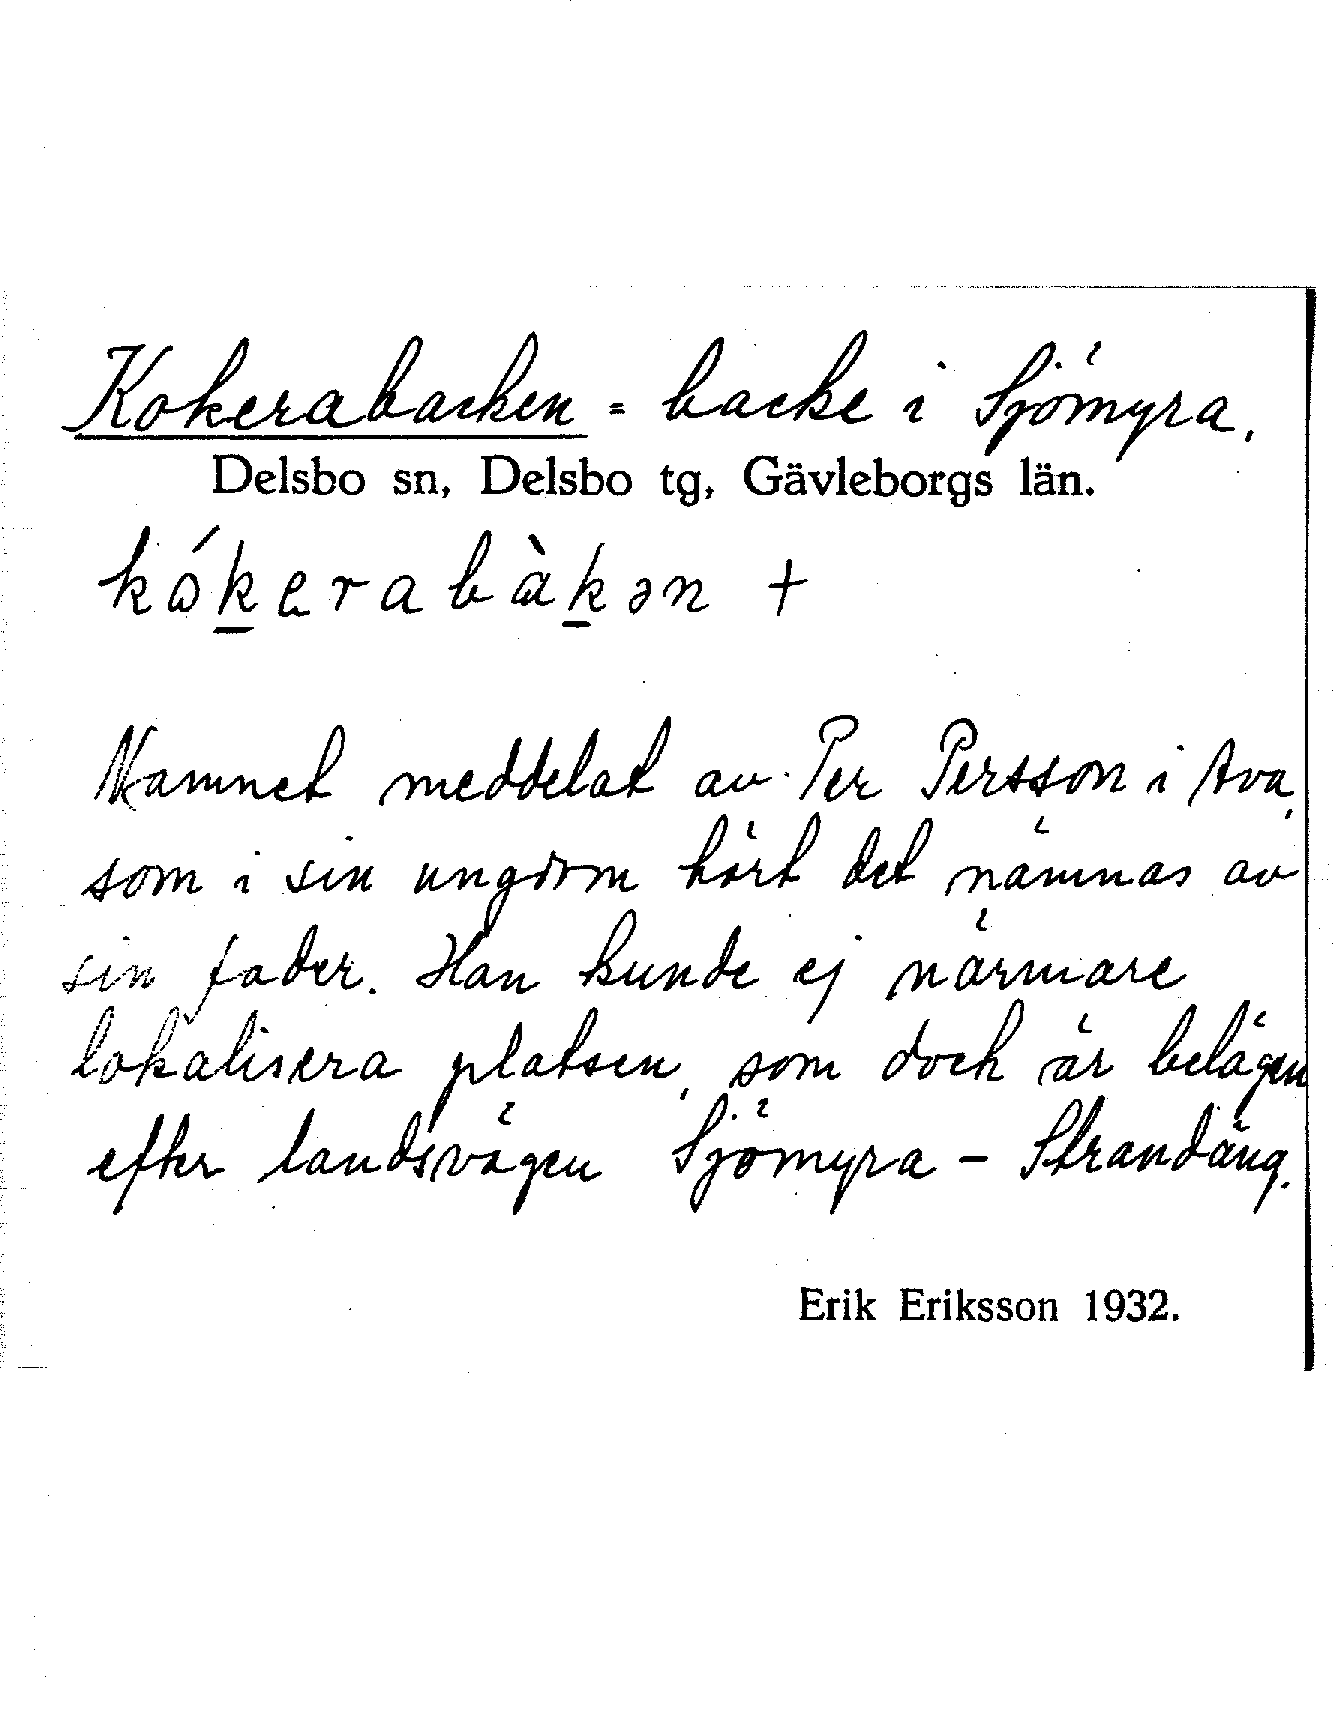 Kokerabacken = backe i Sjömyra.
Delsbo sn, Delsbo tg, Gävleborgs län.
kώk̲erabàk̲ən +
Namnet meddelat av Per Persson i Ava,
som i sin ungdom hört det nämnas av
sin fader. Han kunde ej närmare
lokalisera platsen, som dock är belägen
efter landsvägen Sjömyra – Strandäng.
Erik Eriksson 1932.